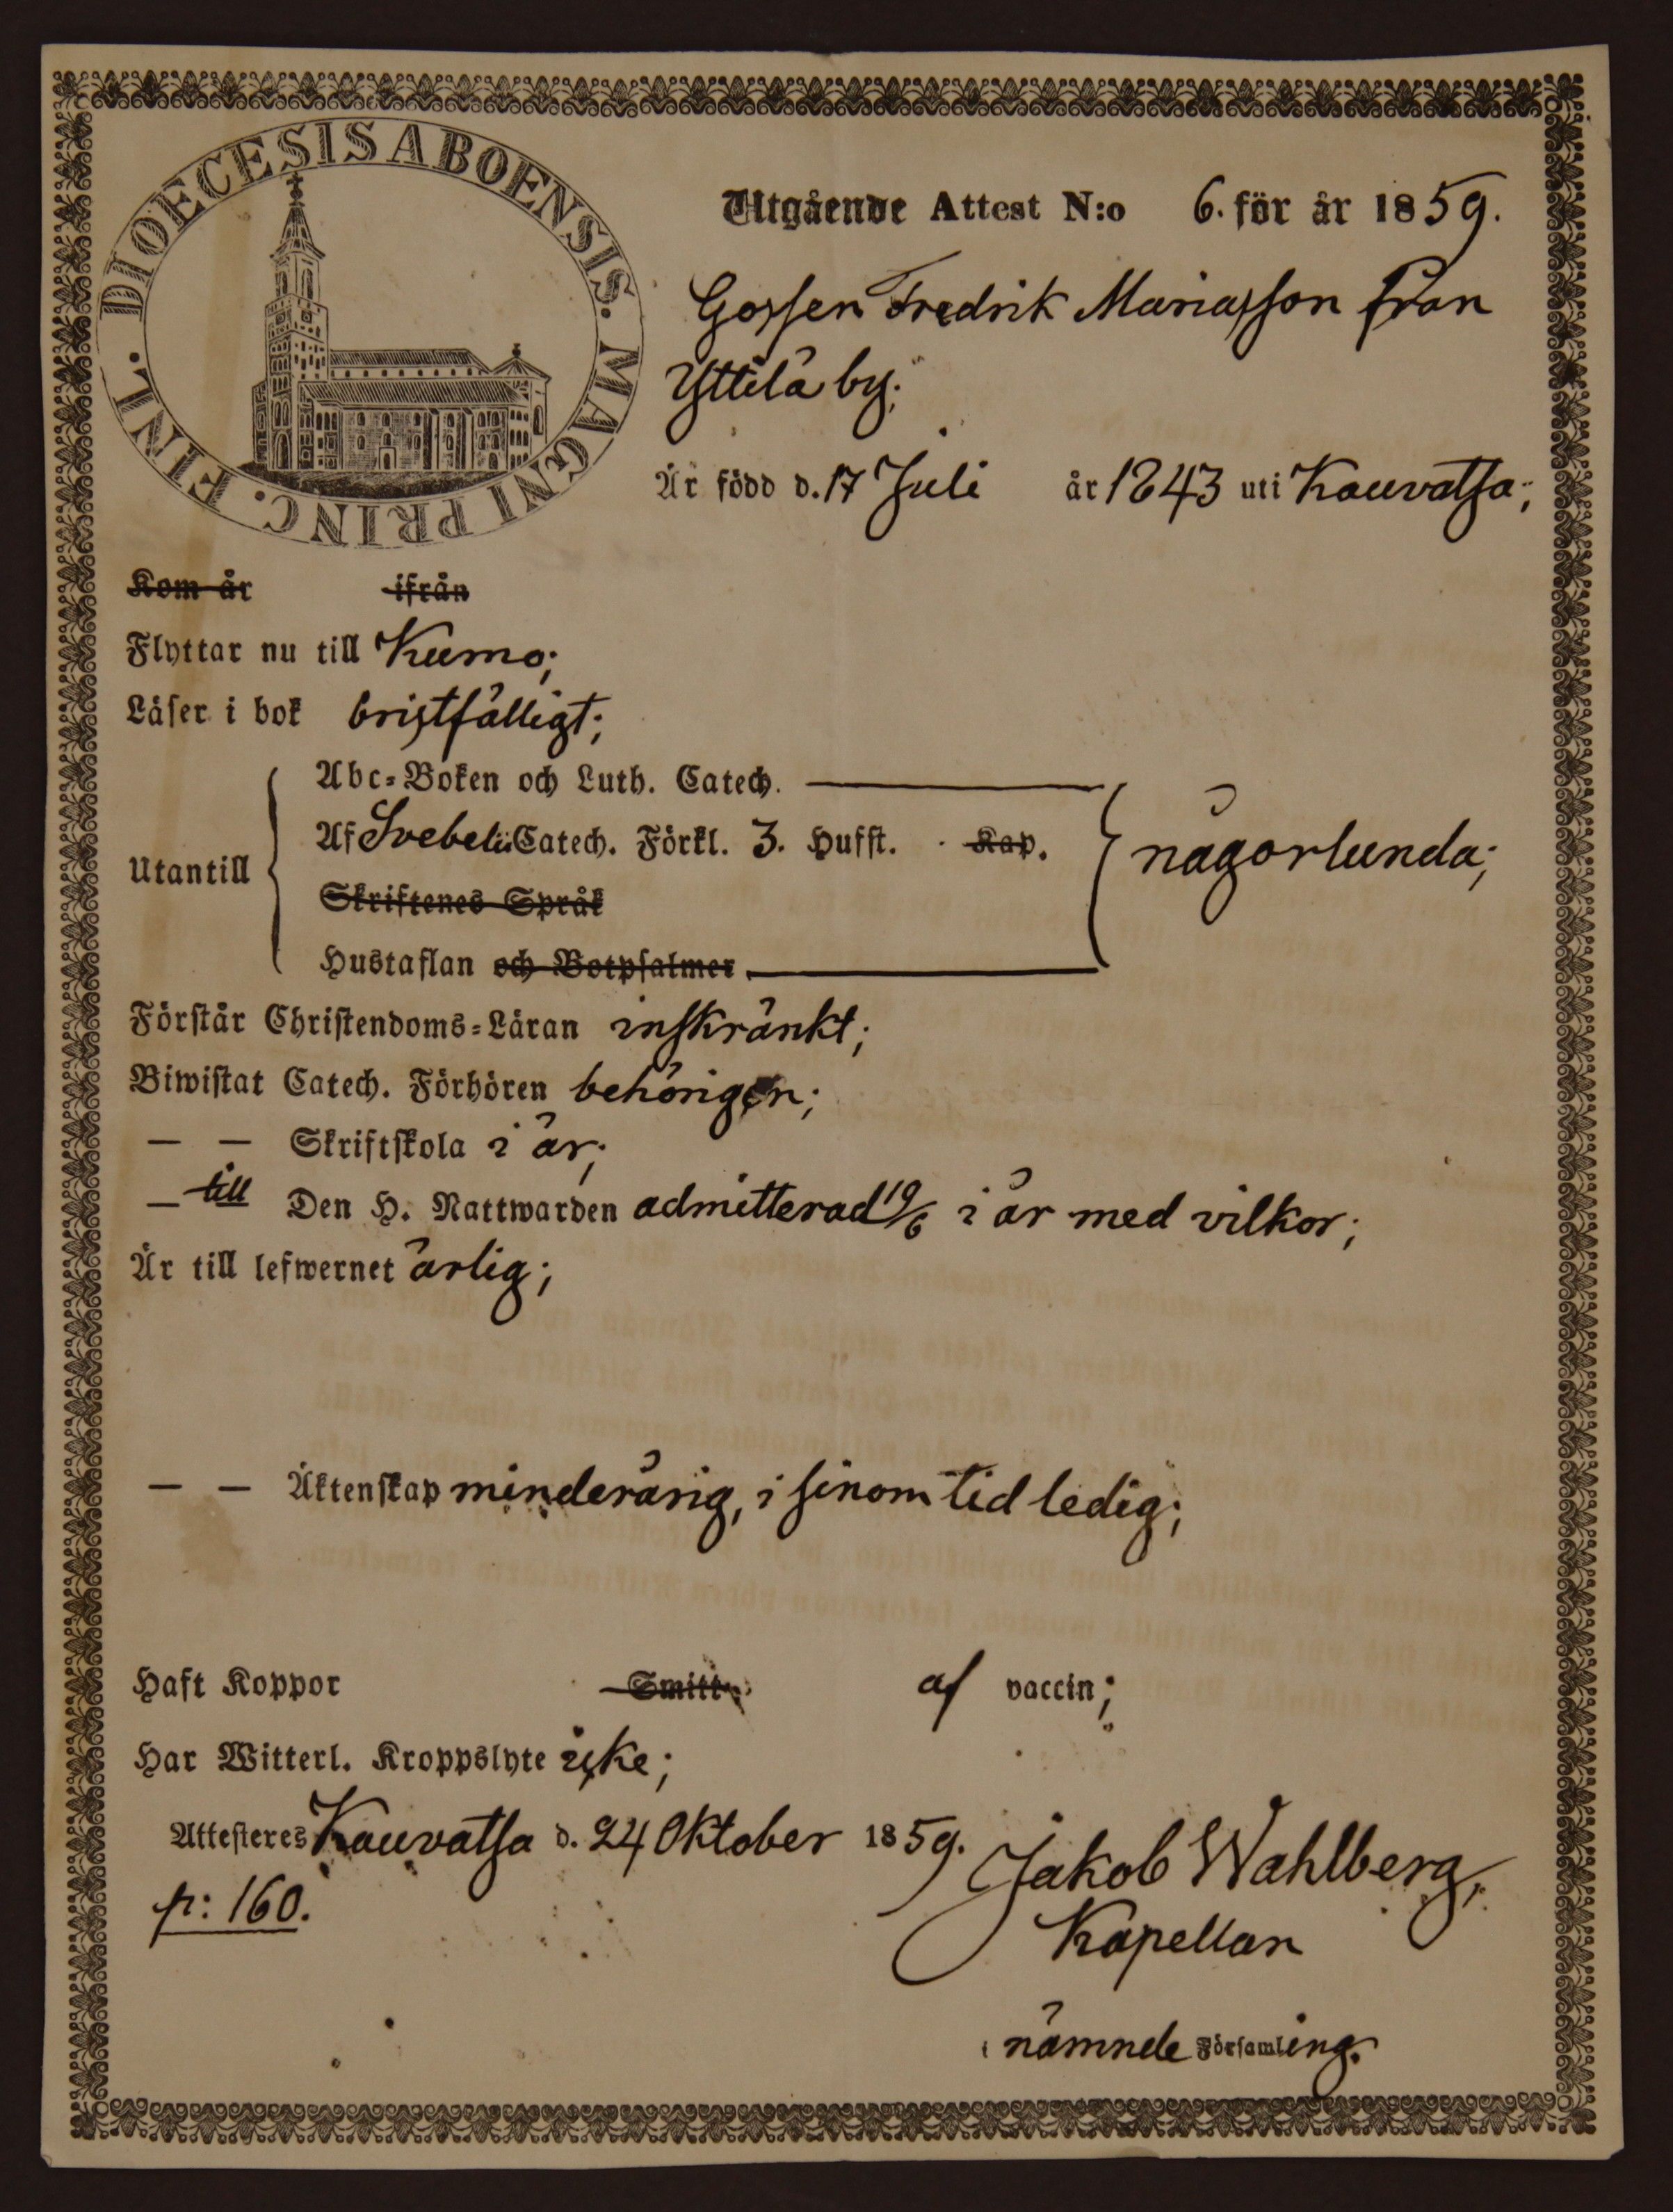 DIOECESIS ABOENSIS. MAGNI PRINC. FINL.
Utgående Attest N:o 6. för år 1859.
Gossen Fredrik Mariasson från
Yttilä by;
Är född d. 17 Juli år 1843 uti Kauvatsa;
Kom år ifrån
Flyttar nu till Kumo;
Läser i bok bristfälligt;
Utantill
Abc-Boken och Luth. Catech.
Af Svebelii Catech. Förkl. 3. Hufst. Kap.
Skriftenes Språk
Hustaflan och Botpsalmer
någorlunda;
Förstår Christendoms-Läran inskränkt;
Biwistat Catech. Förhören behörigen;
— — Skriftskola i år;
— till Den H. Nattwarden admitterad 19/6 i år med vilkor;
Är till lefwernet ärlig;
— — Äktenskap minderårig, i sinom tid ledig;
Haft Koppor Smitt af vaccin;
Har Witterl. Kroppslyte icke;
Attesteres Kauvatsa d. 24 Oktober 1859.
Jakob Wahlberg,
p: 160.
Kapellan
i nämnde Församling.